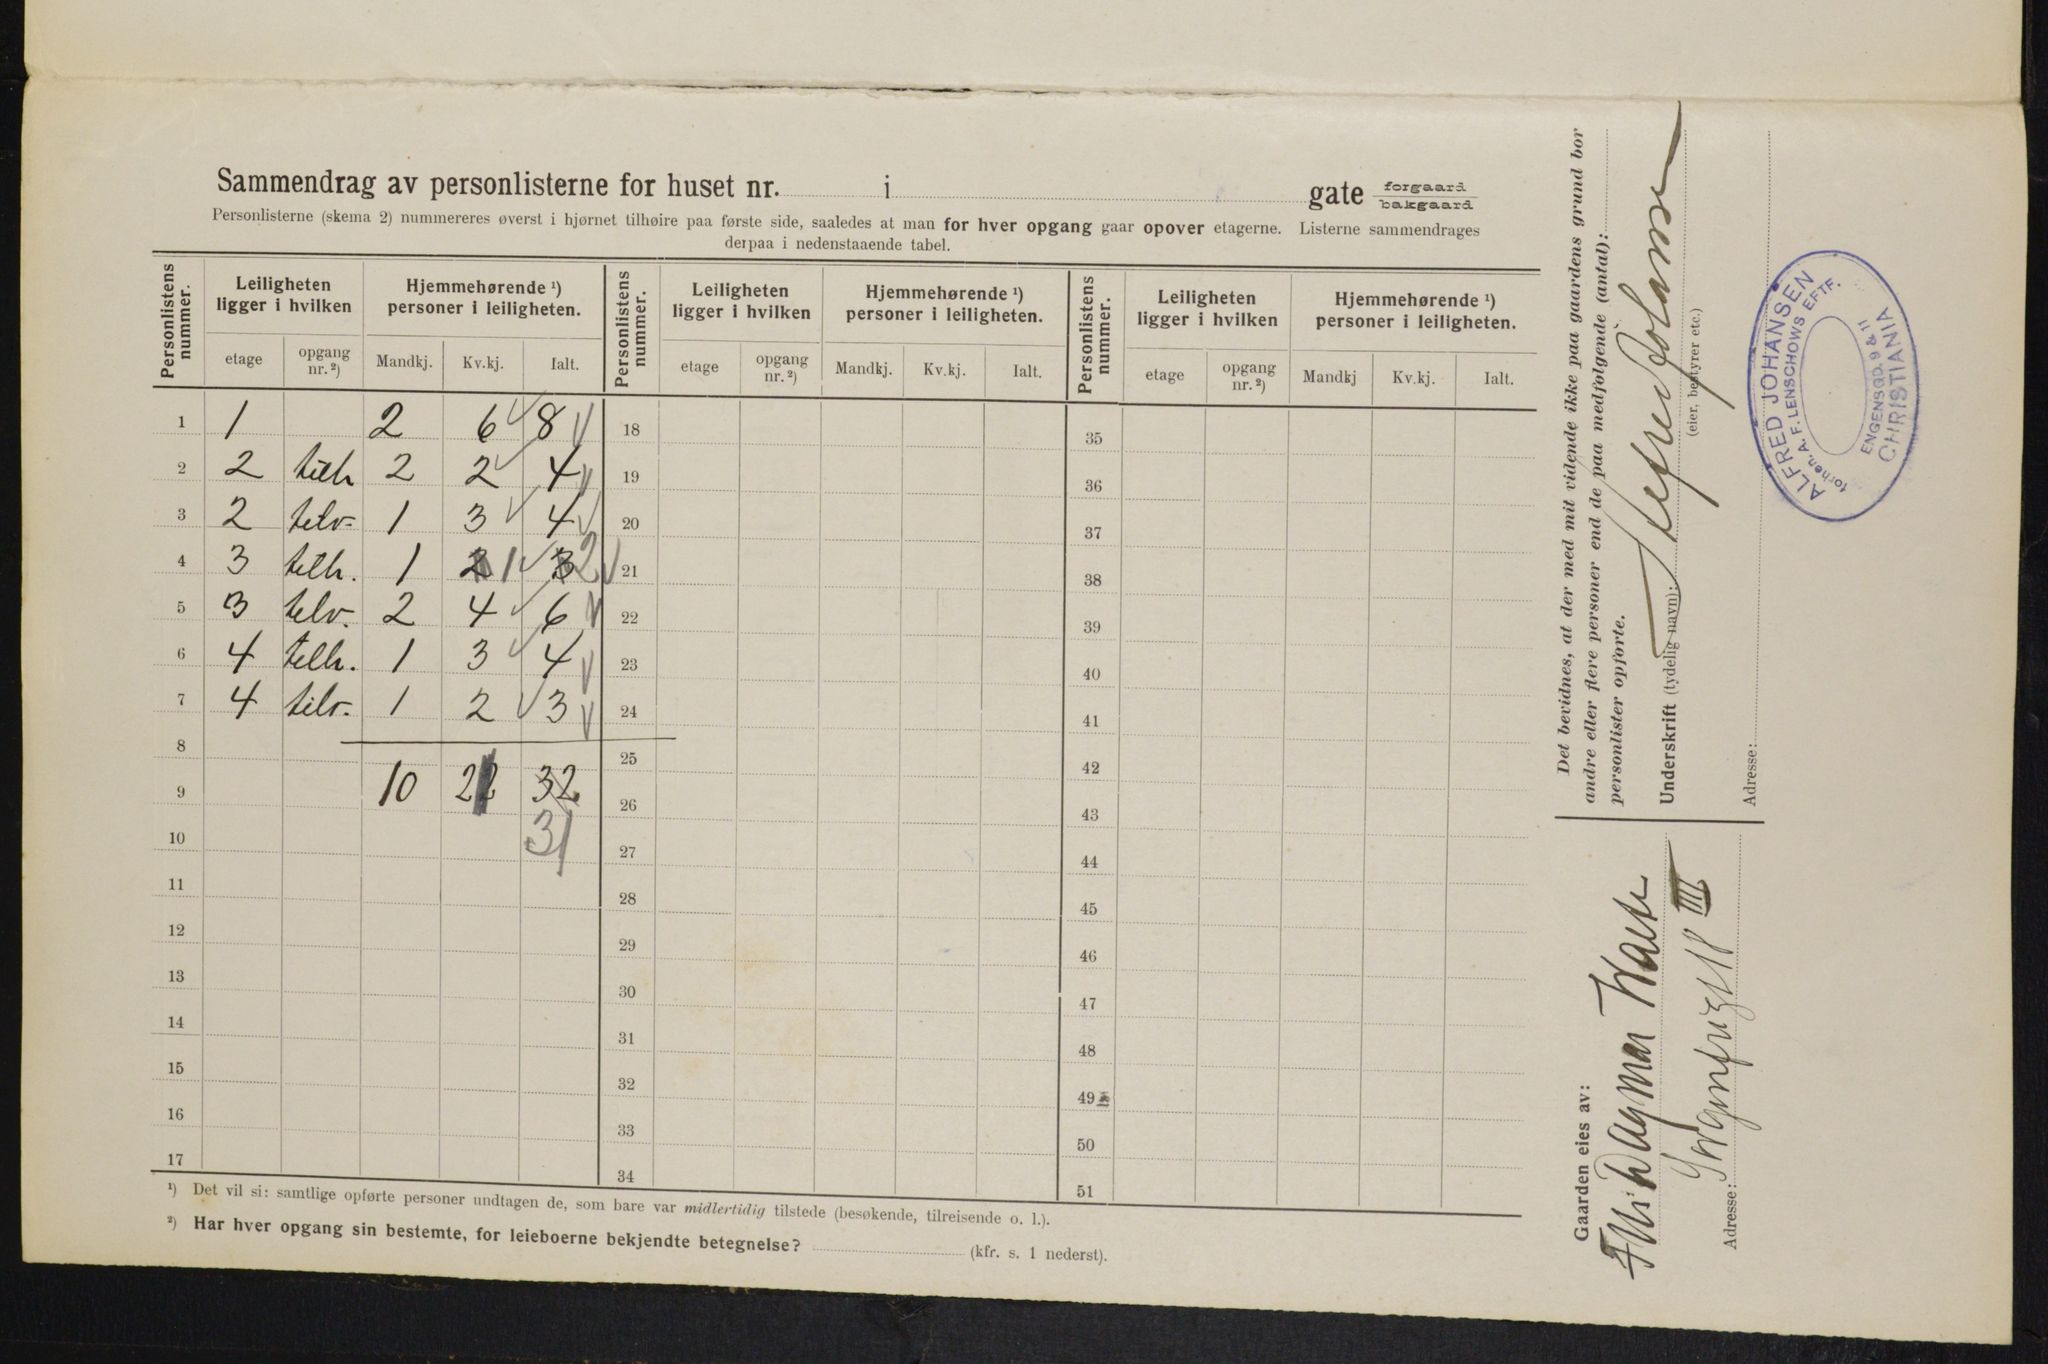 Sammendrag av personlisterne for huset nr. i gate forgaard bakgaard
Personlisterne (skema 2) nummereres øverst i hjørnet tilhøire paa første side, saaledes at man for hver opgang gaar opover etagerne. Listerne sammendrages
derpaa i nedenstaaende tabel.
Personlistens nummer. Leiligheten ligger i hvilken Hjemmehørende ¹) personer i leiligheten. Personlistens nummer. Leiligheten ligger i hvilken Hjemmehørende ¹) personer i leiligheten. Personlistens nummer. Leiligheten ligger i hvilken Hjemmehørende ¹) personer i leiligheten.
etage opgang nr. ²) Mandkj. Kv.kj. Ialt. etage opgang nr. ²) Mandkj. Kv.kj. Ialt. etage opgang nr. ²) Mandkj Kv.kj. Ialt.
1 1 2 6 8 18 35
2 2 tilh 2 2 4 19 36
3 2 tilv. 1 3 4 20 37
4 3 tilh. 1 2 1 3 2 21 38
5 3 tilv. 2 4 6 22 39
6 4 tilh. 1 3 4 23 40
7 4 tilv. 1 2 3 24 41
8 25 42
9 10 22 32 26 43
10 31 27 44
11 28 45
12 29 46
13 30 47
14 31 48
15 32 49
16 33 50
17 34 51
¹) Det vil si: samtlige opførte personer undtagen de, som bare var midlertidig tilstede (besøkende, tilreisende o. l.).
²) Har hver opgang sin bestemte, for leieboerne bekjendte betegnelse? (kfr. s. 1 nederst).
Det bevidnes, at der med mit vidende ikke paa gaardens grund bor
andre eller flere personer end de paa medfølgende (antal):
personlister opførte.
Underskrift (tydelig navn): Alfred Johansen
(eier, bestyrer etc.)
Adresse:
ALFRED JOHANSEN
forhen. A. F. LENSCHOWS EFTF.
ENGENSGD. 9 & 11
CHRISTIANIA
Gaarden eies av:
Dagmar
Adresse: III